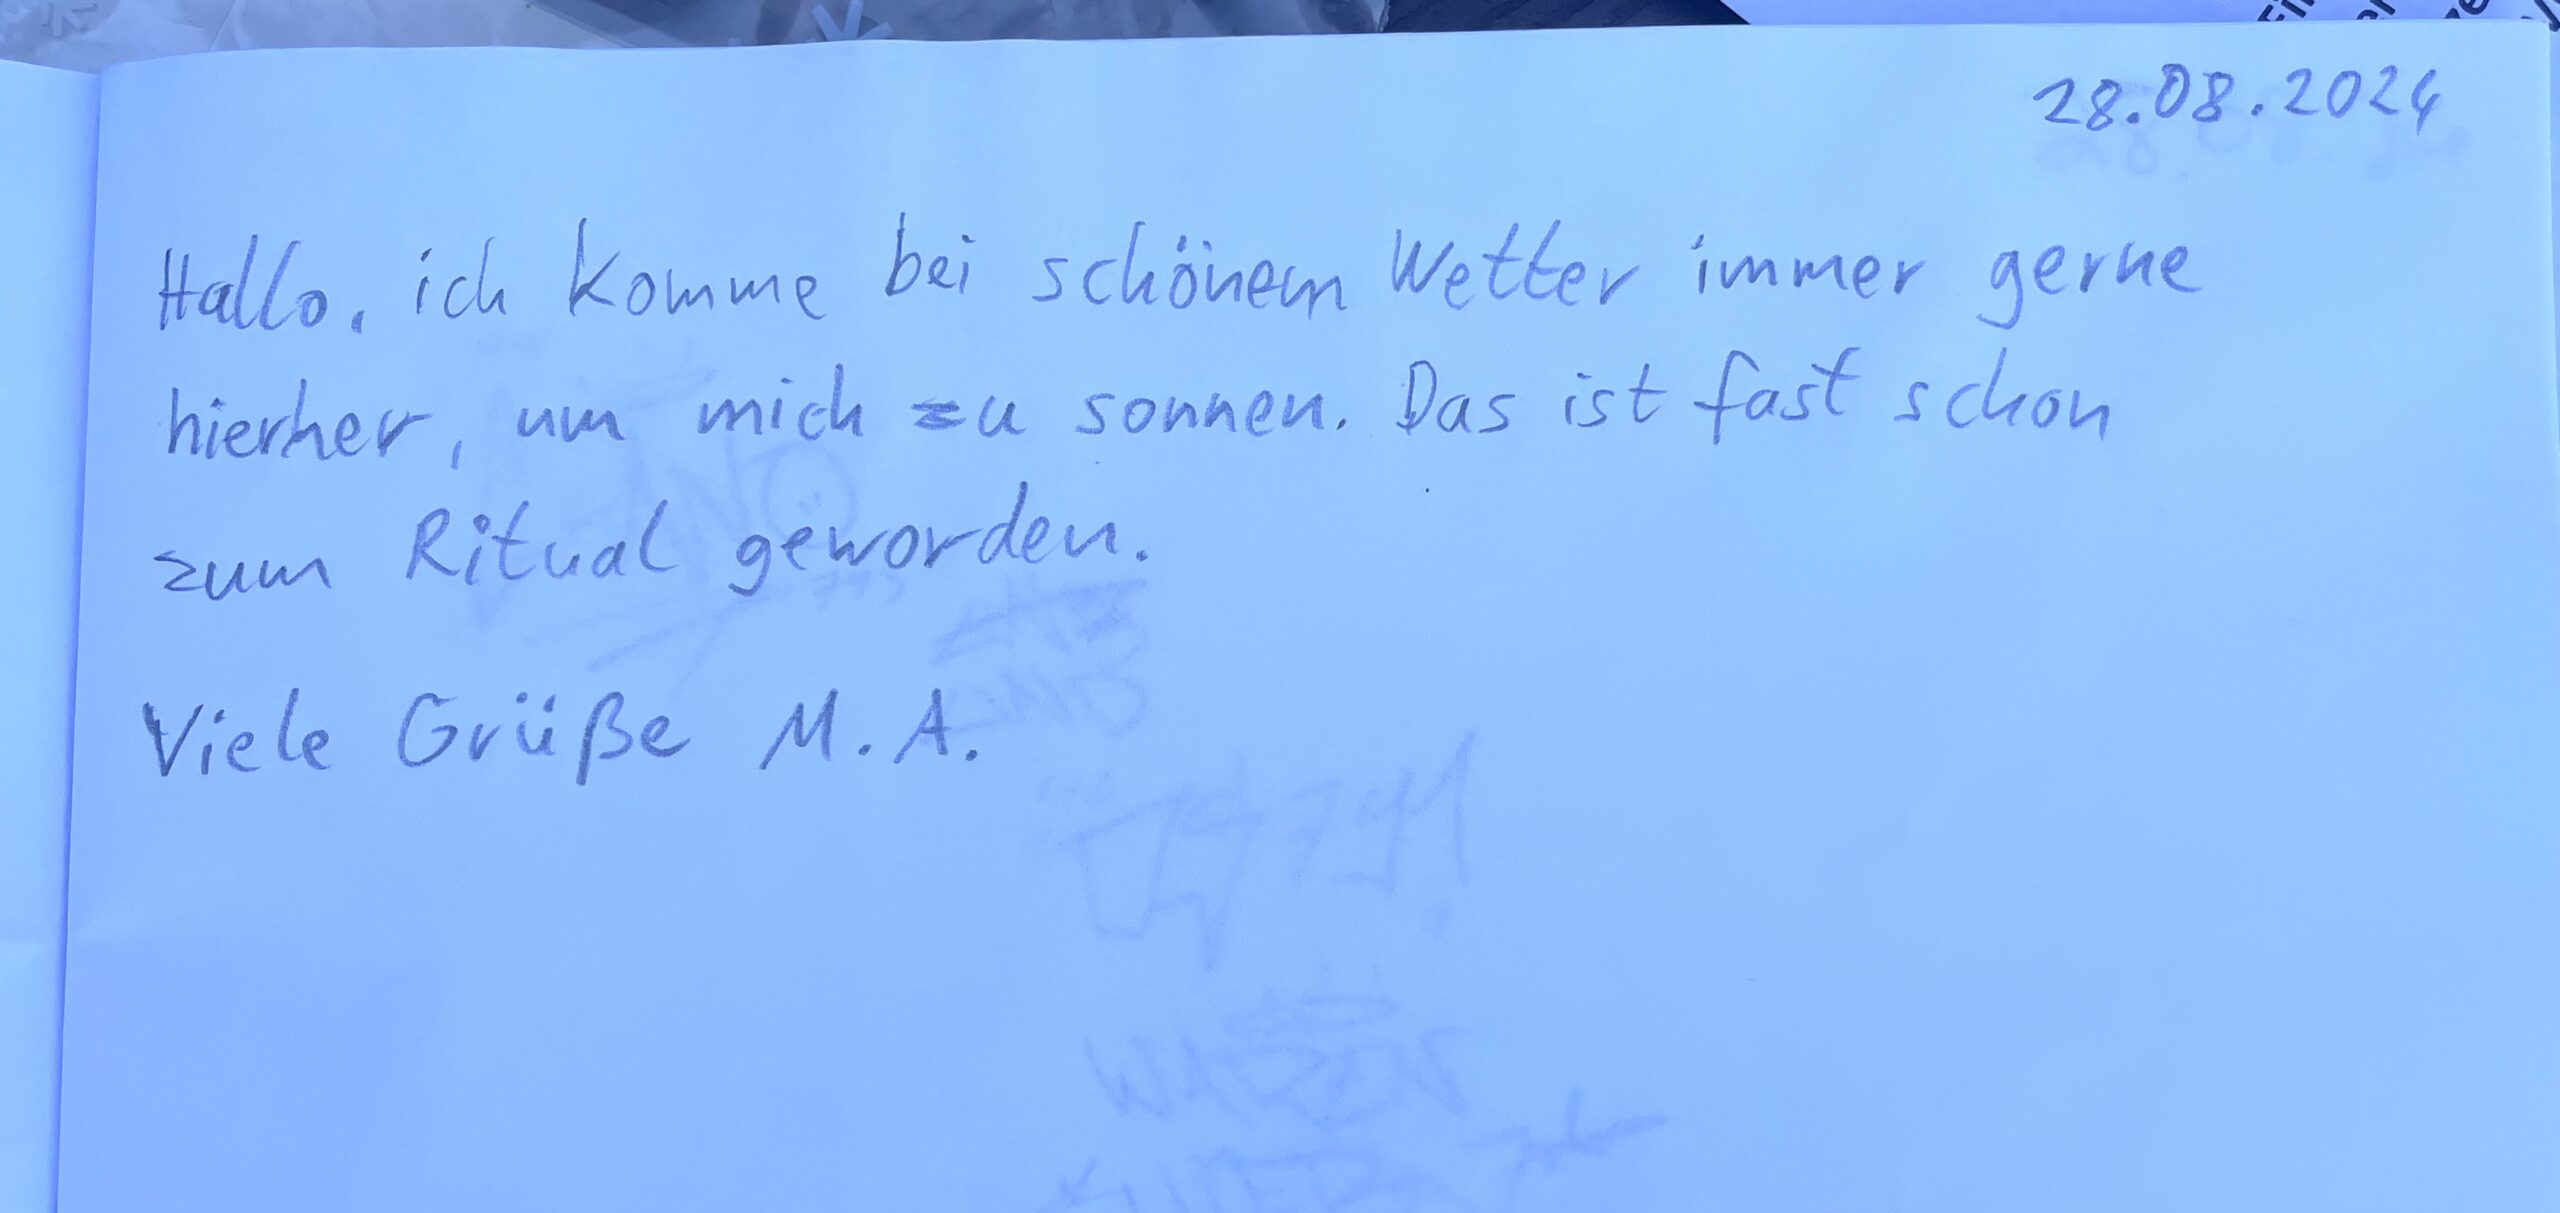 28.08.2024
Hallo, ich komme bei schönem Wetter immer gerne
hierher, um mich zu sonnen. Das ist fast schon
zum Ritual geworden.
Viele Grüße M. A.